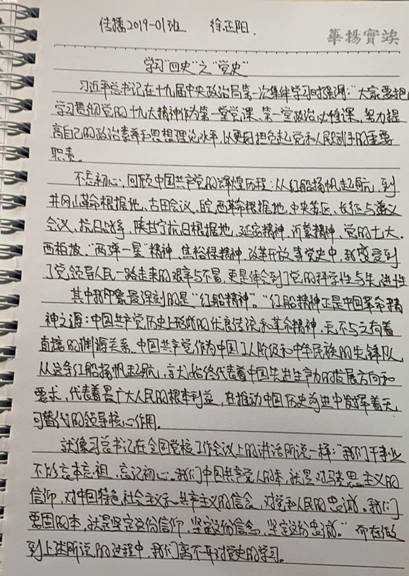 传播2019-01班 徐正阳.
華揚實誠
学习"四史"之"党史"
习近平总书记在十九届中央政治局第一次集体学习时强调:"大家要把
学习贯彻党的十九大精神作为第一堂党课、第一堂政治必修课,努力提
高自己的政治素养和思想理论水平,以更好担负起党和人民赋予的重要
职责。
不忘初心,回顾中国共产党的辉煌历程:从红船扬帆起航,到
井冈山革命根据地,古田会议,皖西革命根据地,中央苏区,长征与遵义
会议,抗日战争,陕甘宁抗日根据地,延安精神,沂蒙精神,党的七大,
西柏坡,"两弹一星"精神,焦裕禄精神,改革开放等党史中,我感受到
了党领导人民一路走来的艰辛与不易,更是体会到了党的科学性与先进性
其中我印象最深刻的是"红船精神"。"红船精神正是中国革命精
神之源:中国共产党历史上形成的优良传统和革命精神,无不与之有着
直接的渊源关系。中国共产党作为中国工人阶级和中华民族的先锋队
从这条红船扬帆起航,言 始终代表着中国先进生产力的发展方向和
要求,代表着最广大人民的根本利益,在推动中国历史前进中发挥着无
可替代的领导核心作用。
就像习总书记在全国党校工作会议上的讲话所说一样:"我们干事业
不能忘本忘祖、忘记初心。我们中国共产党人的本,就是对马克思主义的
信仰,对中国特色社会主义、共产主义的信念,对党和人民的忠诚。我们
要固的本,就是坚定这份信仰、坚定这份信念、坚定这份忠诚。"而在做
到上述所说的过程中,我们离不开对党史的学习。